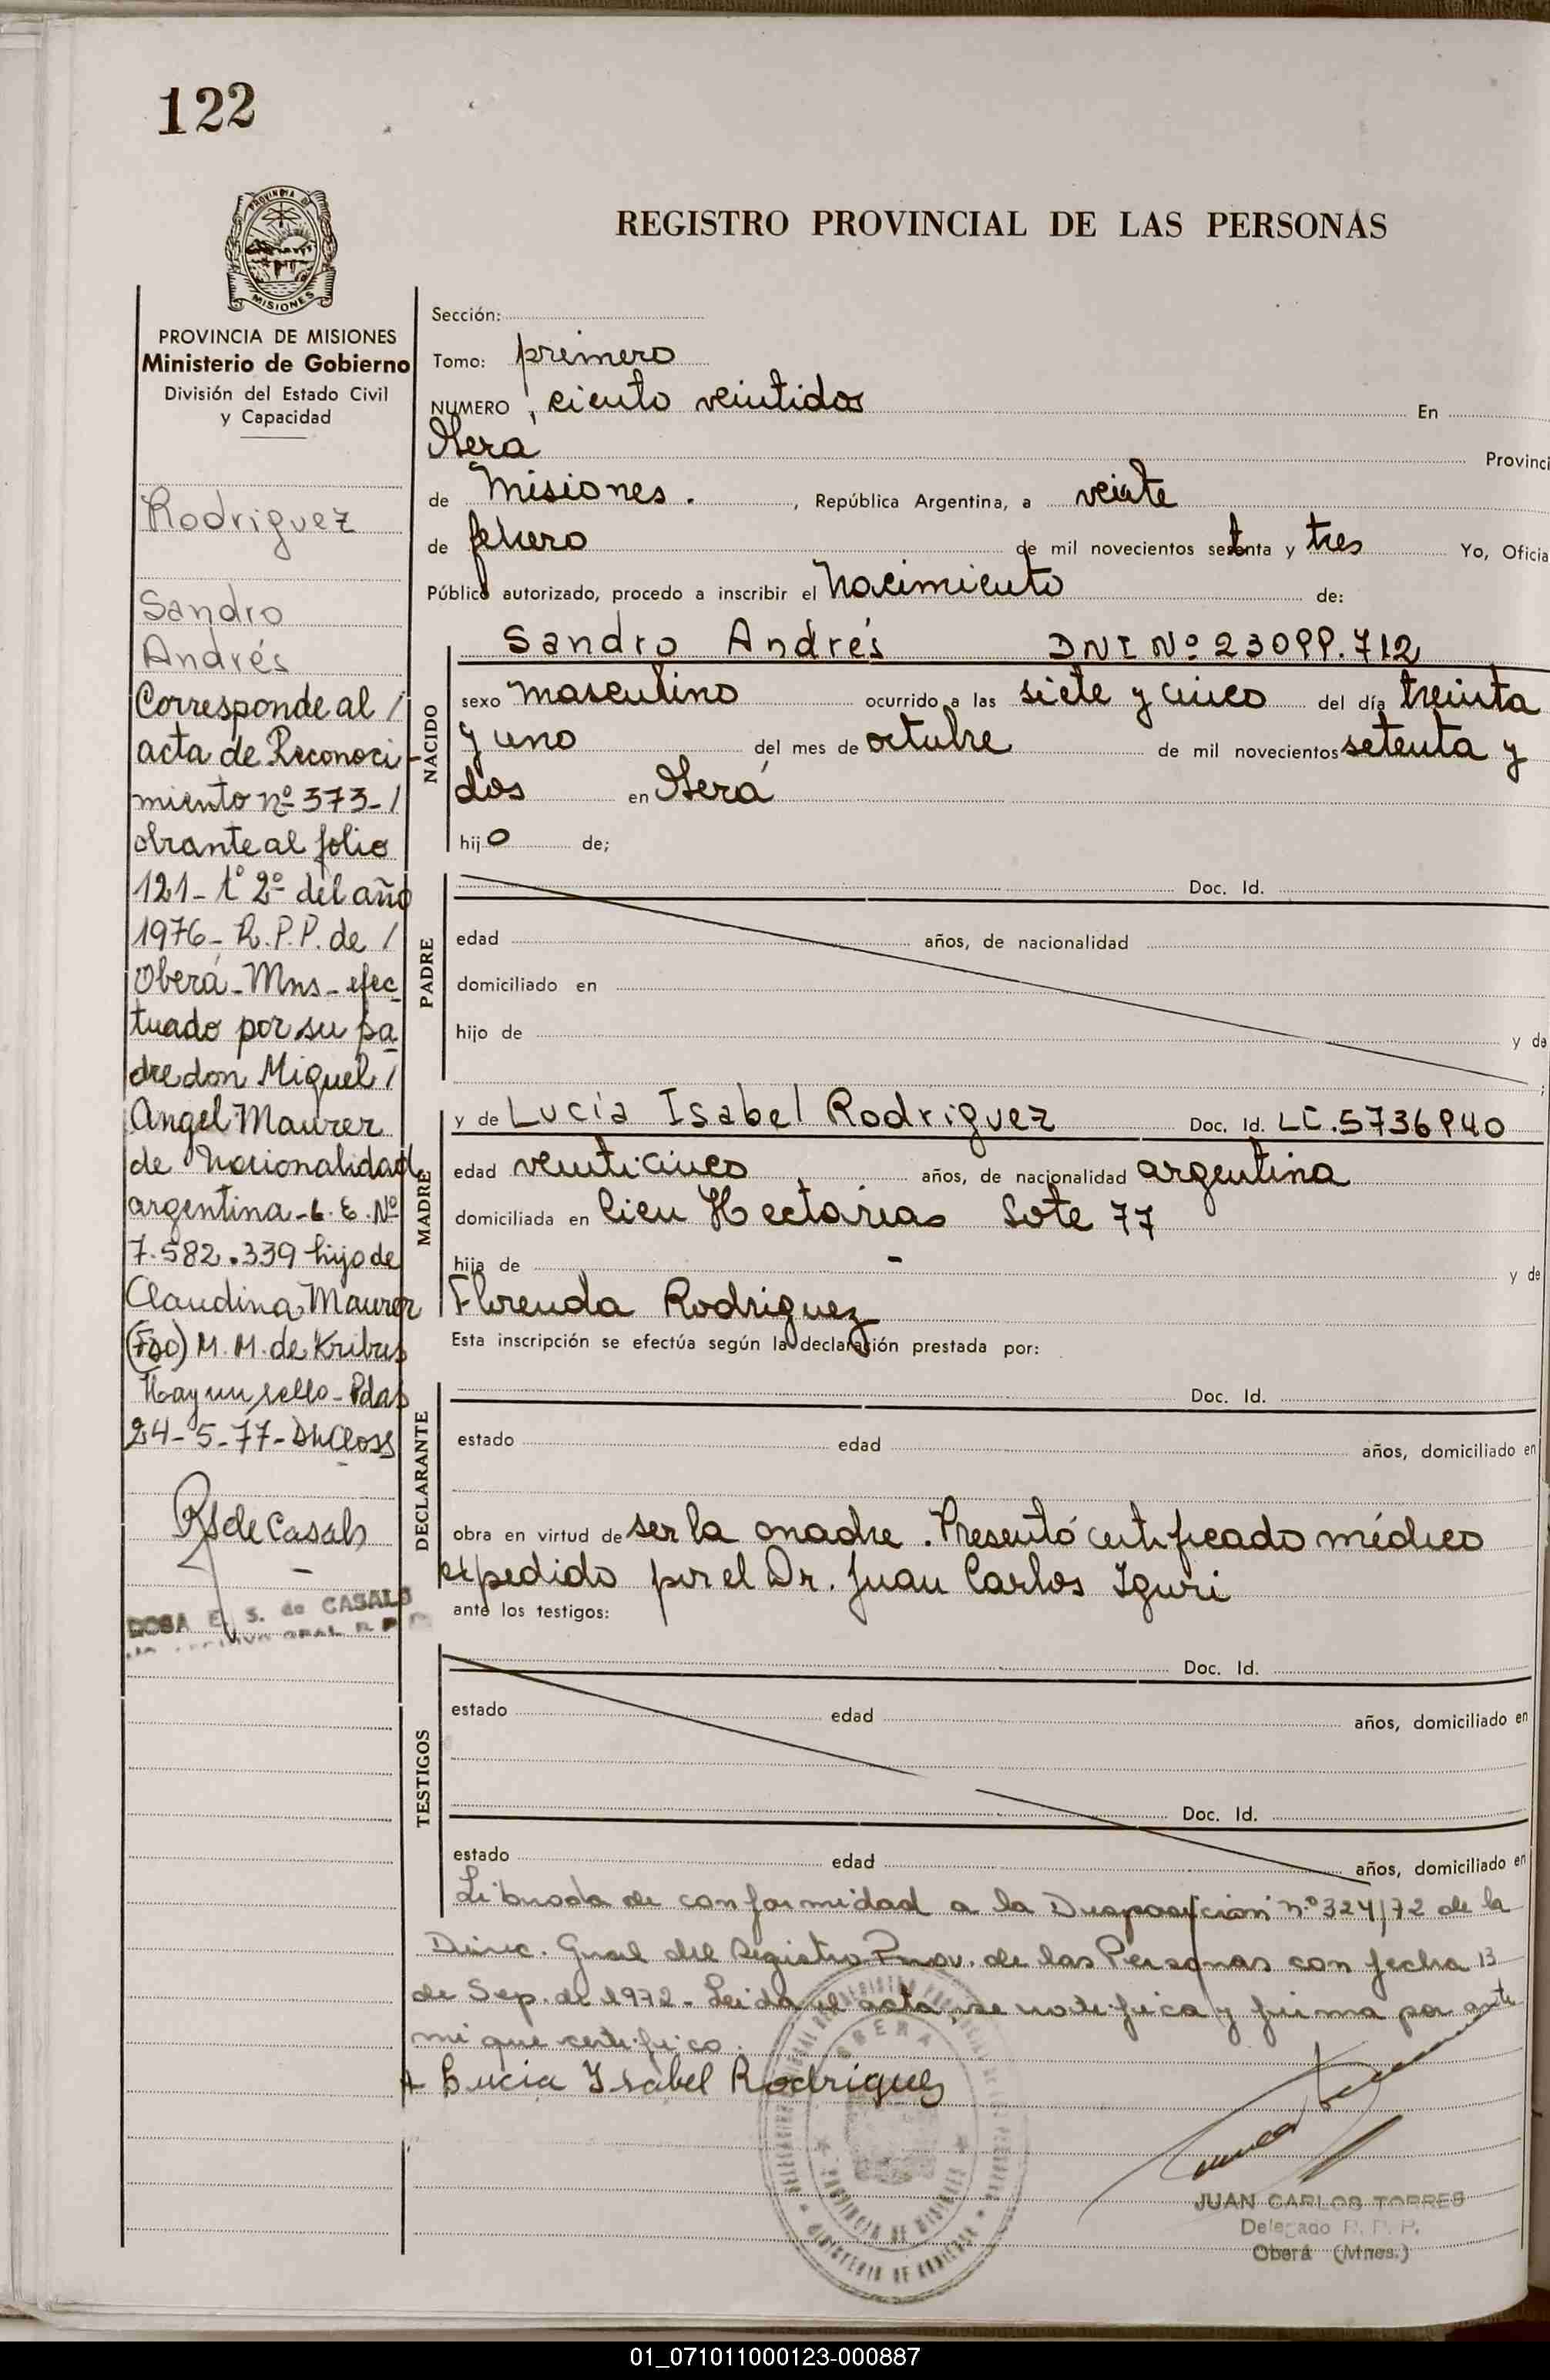 122
PROVINCIA DE MISIONES
MISIONES
PROVINCIA DE MISIONES
Ministerio de Gobierno
División del Estado Civil
y Capacidad
Rodriguez
Sandro
Andrés
Corresponde al /
acta de Reconoci-
miento nº 373- /
obrante al folio
121- tº 2º del año
1976- R.P.P. de /
Oberá- Mns- efec
tuado por su pa
dre don Miguel /
Angel Maurer
de nacionalidad
argentina- L.E. Nº
7.582.339 hijo de
Claudina Maurer
(Fdo) M. M. de
Hay un sello- Pdas
24-5-77-
de Casals
ROSA E. S. de CASALS
REGISTRO PROVINCIAL DE LAS PERSONAS
Sección:
Tomo: primero
NUMERO, ciento veintidos En
Oberá Provinci
de Misiones. , República Argentina, a veinte
de febrero de mil novecientos setenta y tres Yo, Oficia
Público autorizado, procedo a inscribir el nacimiento de:
NACIDO
Sandro Andrés DNI Nº 23099.712
sexo masculino ocurrido a las siete y cinco del día treinta
y uno del mes de octubre de mil novecientos setenta y
dos en Oberá
hijo de;
PADRE
Doc. Id.
edad años, de nacionalidad
domiciliado en
hijo de y de
;
MADRE
y de Lucía Isabel Rodriguez Doc. Id. LC.5736940
edad veinticinco años, de nacionalidad argentina
domiciliada en cien Hectárias Lote 77
hija de - y de
Rodriguez
Esta inscripción se efectúa según la declaración prestada por:
DECLARANTE
Doc. Id.
estado edad años, domiciliado en
obra en virtud de ser la madre. Presentó certificado médico
expedido por el Dr. Juan Carlos Iguri
ante los testigos:
TESTIGOS
Doc. Id.
estado edad años, domiciliado en
Doc. Id.
estado edad años, domiciliado en
Librada de conformidad a la Disposición n.º 324/72 de la
Direc. Gnal del Registro Prov. de las Personas con fecha 13
de Sep. de 1972- Leida el acta, se notifica y firma por ante
mi que certifico.
Lucia Isabel Rodriguez
OBERA
PROVINCIA DE MISIONES
MINISTERIO DE GOBIERNO
JUAN CARLOS TORRES
Delegado R. P. P.
Oberá (Mnes.)
01_071011000123-000887